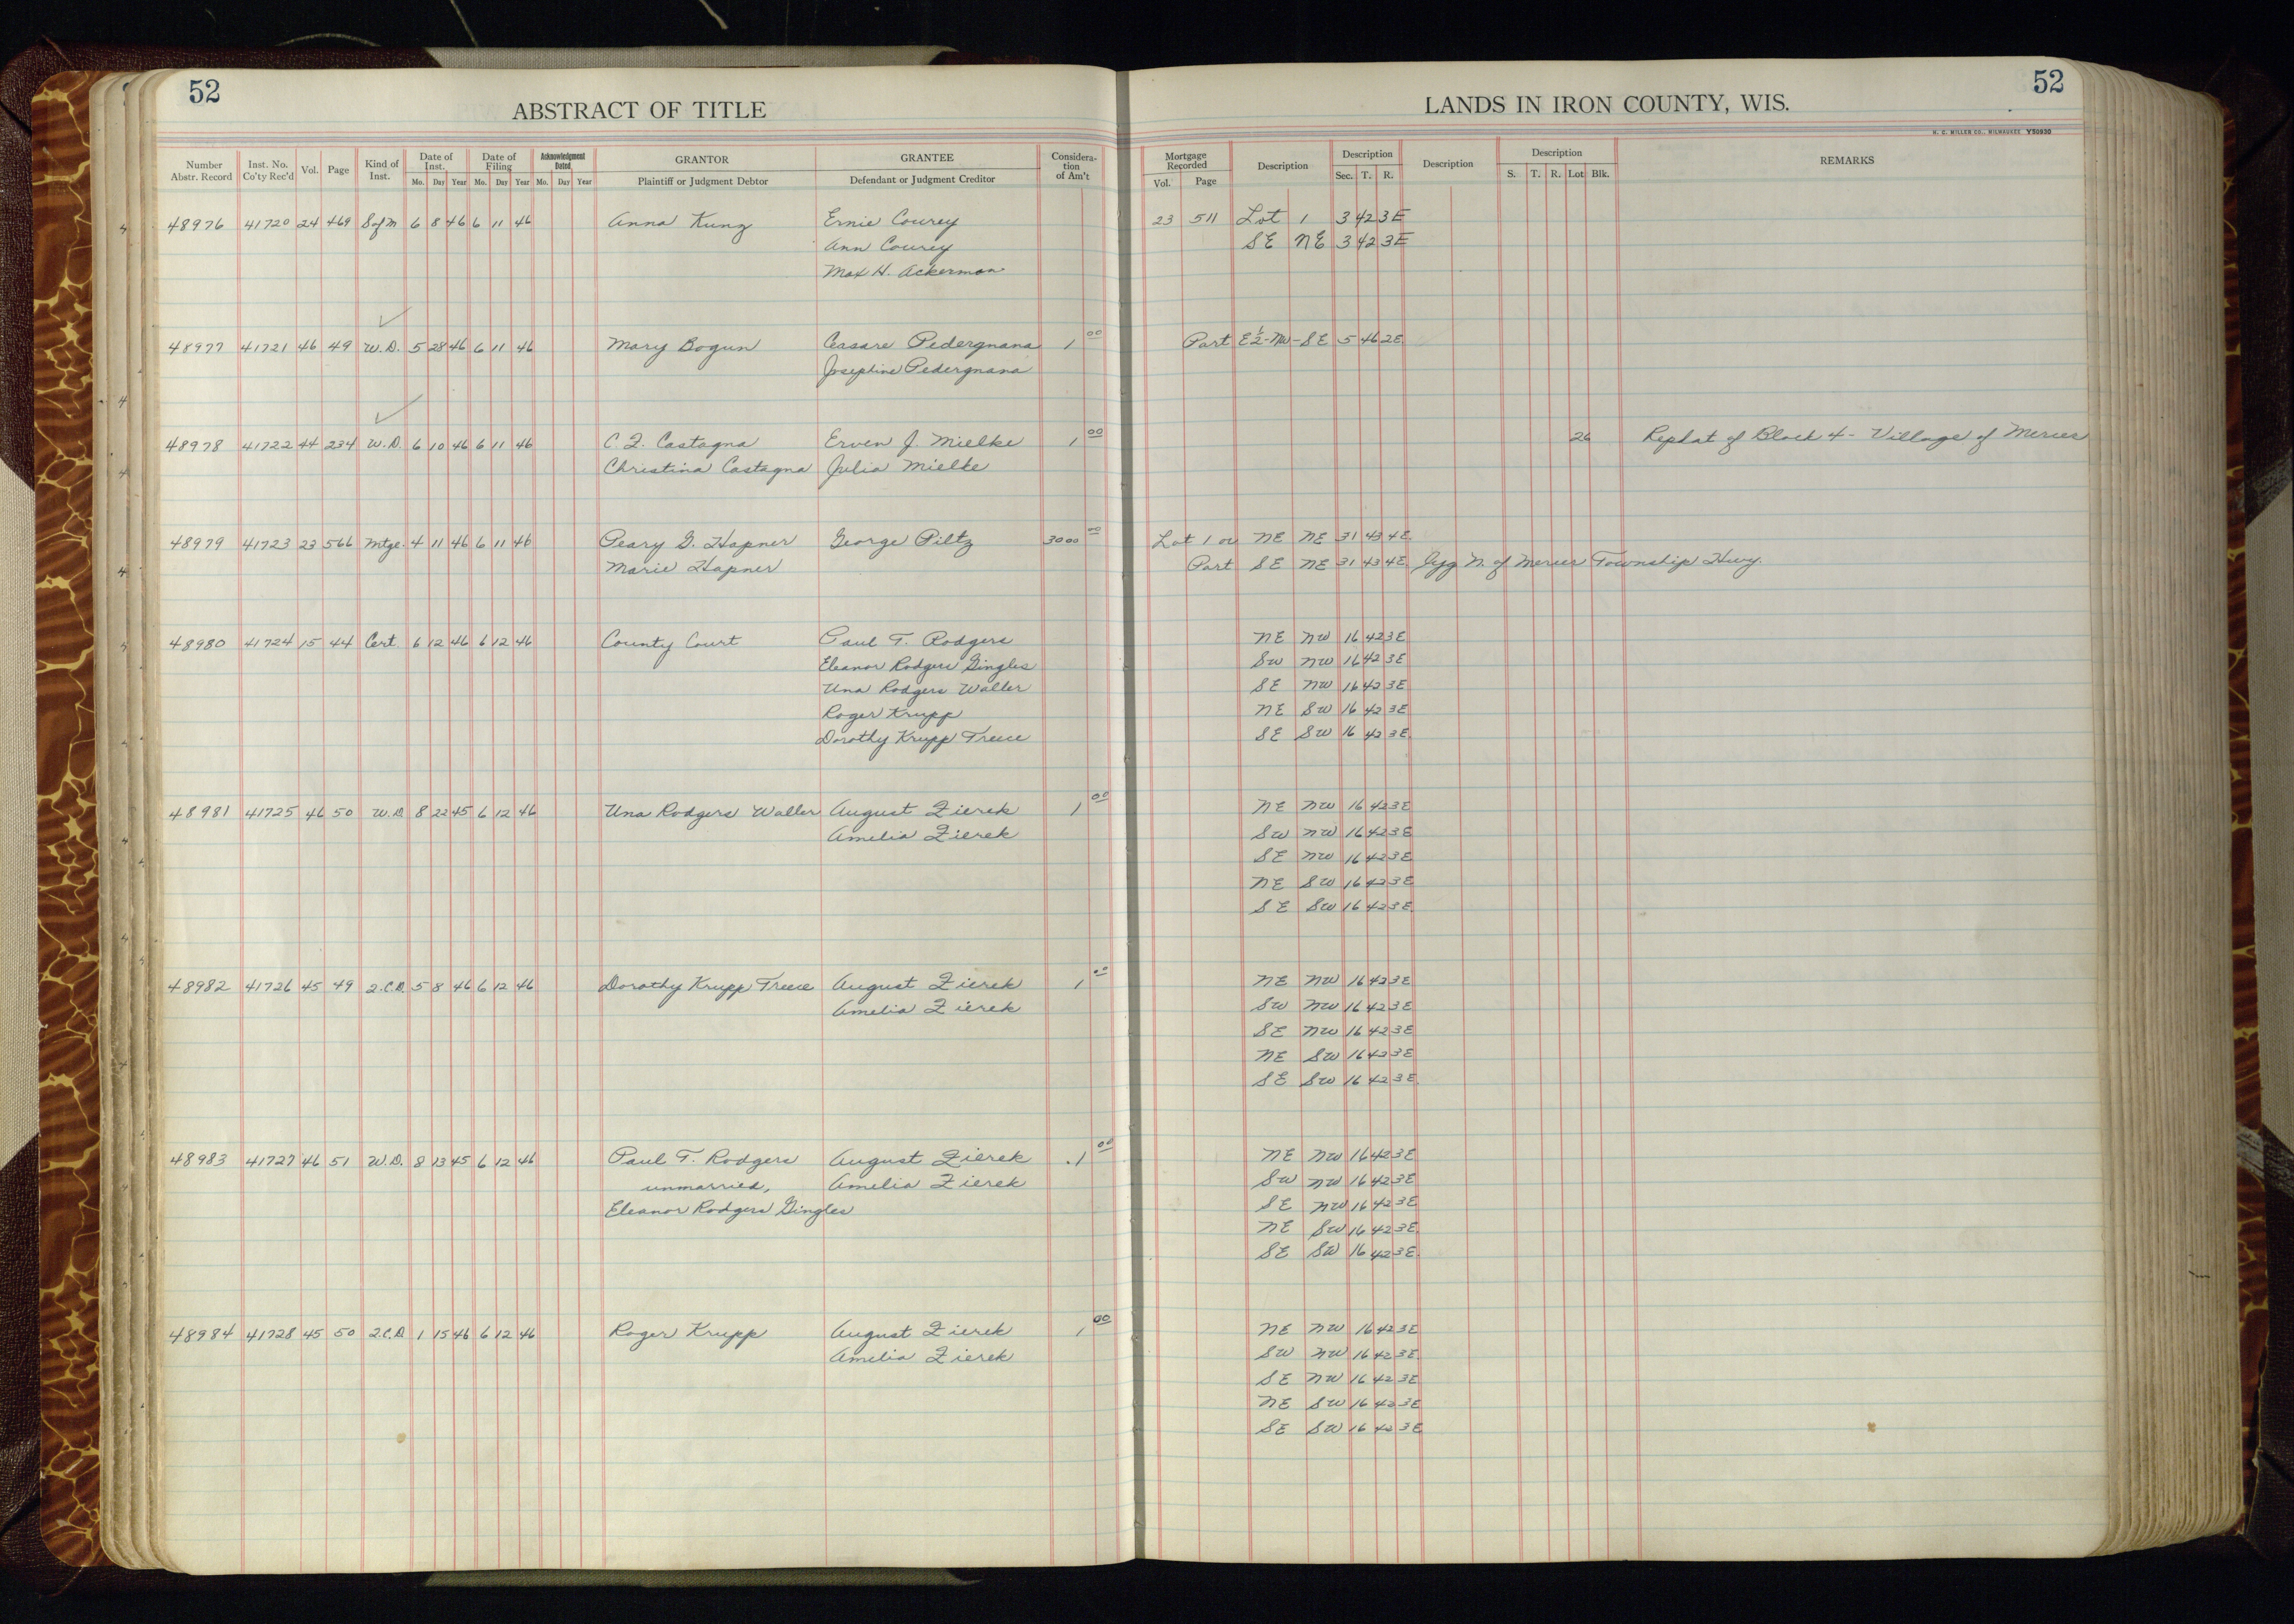 52
ABSTRACT OF TITLE
LANDS IN IRON COUNTY, WIS.
52
H. C. MILLER CO., MILWAUKEE Y50930
Number Abstr. Record | Inst. No. Co'ty Rec'd | Vol. | Page | Kind of Inst. | Date of Inst. Mo. Day Year | Date of Filing Mo. Day Year | Acknowledgment Dated Mo. Day Year | GRANTOR Plaintiff or Judgment Debtor | GRANTEE Defendant or Judgment Creditor | Consideration of Am't | Mortgage Recorded Vol. Page | Description | Description Sec. T. R. | Description | Description S. T. R. Lot Blk. | REMARKS
48976 41720 24 469 S of M 6 8 46 6 11 46 Anna Kung Ernie Courey 23 511 Lot 1 3 42 3E
Ann Courey SE NE 3 42 3E
Max H. Ackerman
48977 41721 46 49 W.D. 5 28 46 6 11 46 Mary Bogun Cersare Pedergnana 1 00 Part E½-NW-SE 5 46 2E
Josephine Pedergnana
48978 41722 44 234 W.D. 6 10 46 6 11 46 C. F. Castagna Erven J. Mielke 1 00 26 Replat of Block 4 - Village of Mercer
Christina Castagna Julia Mielke
48979 41723 23 566 Mtge. 4 11 46 6 11 46 Peary G. Hapner George Piltz 3000 00 Lot 1 or NE NE 31 43 4E
Marie Hapner Part SE NE 31 43 4E lyg N. of Mercer Township Hwy.
48980 41724 15 44 Cert. 6 12 46 6 12 46 County Court Paul T. Rodgers NE NW 16 42 3E
Eleanor Rodgers Gingles SW NW 16 42 3E
Una Rodgers Waller SE NW 16 42 3E
Roger Krupp NE SW 16 42 3E
Dorothy Krupp Treece SE SW 16 42 3E
48981 41725 46 50 W.D. 8 22 45 6 12 46 Una Rodgers Waller August Zierek 1 00 NE NW 16 42 3E
Amelia Zierek SW NW 16 42 3E
SE NW 16 42 3E
NE SW 16 42 3E
SE SW 16 42 3E
48982 41726 45 49 2.C.D. 5 8 46 6 12 46 Dorothy Krupp Treece August Zierek 1 00 NE NW 16 42 3E
Amelia Zierek SW NW 16 42 3E
SE NW 16 42 3E
NE SW 16 42 3E
SE SW 16 42 3E
48983 41727 46 51 W.D. 8 13 45 6 12 46 Paul T. Rodgers August Zierek 1 00 NE NW 16 42 3E
unmarried, Amelia Zierek SW NW 16 42 3E
Eleanor Rodgers Gingles SE NW 16 42 3E
NE SW 16 42 3E
SE SW 16 42 3E
48984 41728 45 50 2.C.D. 1 15 46 6 12 46 Roger Krupp August Zierek 1 00 NE NW 16 42 3E
Amelia Zierek SW NW 16 42 3E
SE NW 16 42 3E
NE SW 16 42 3E
SE SW 16 42 3E